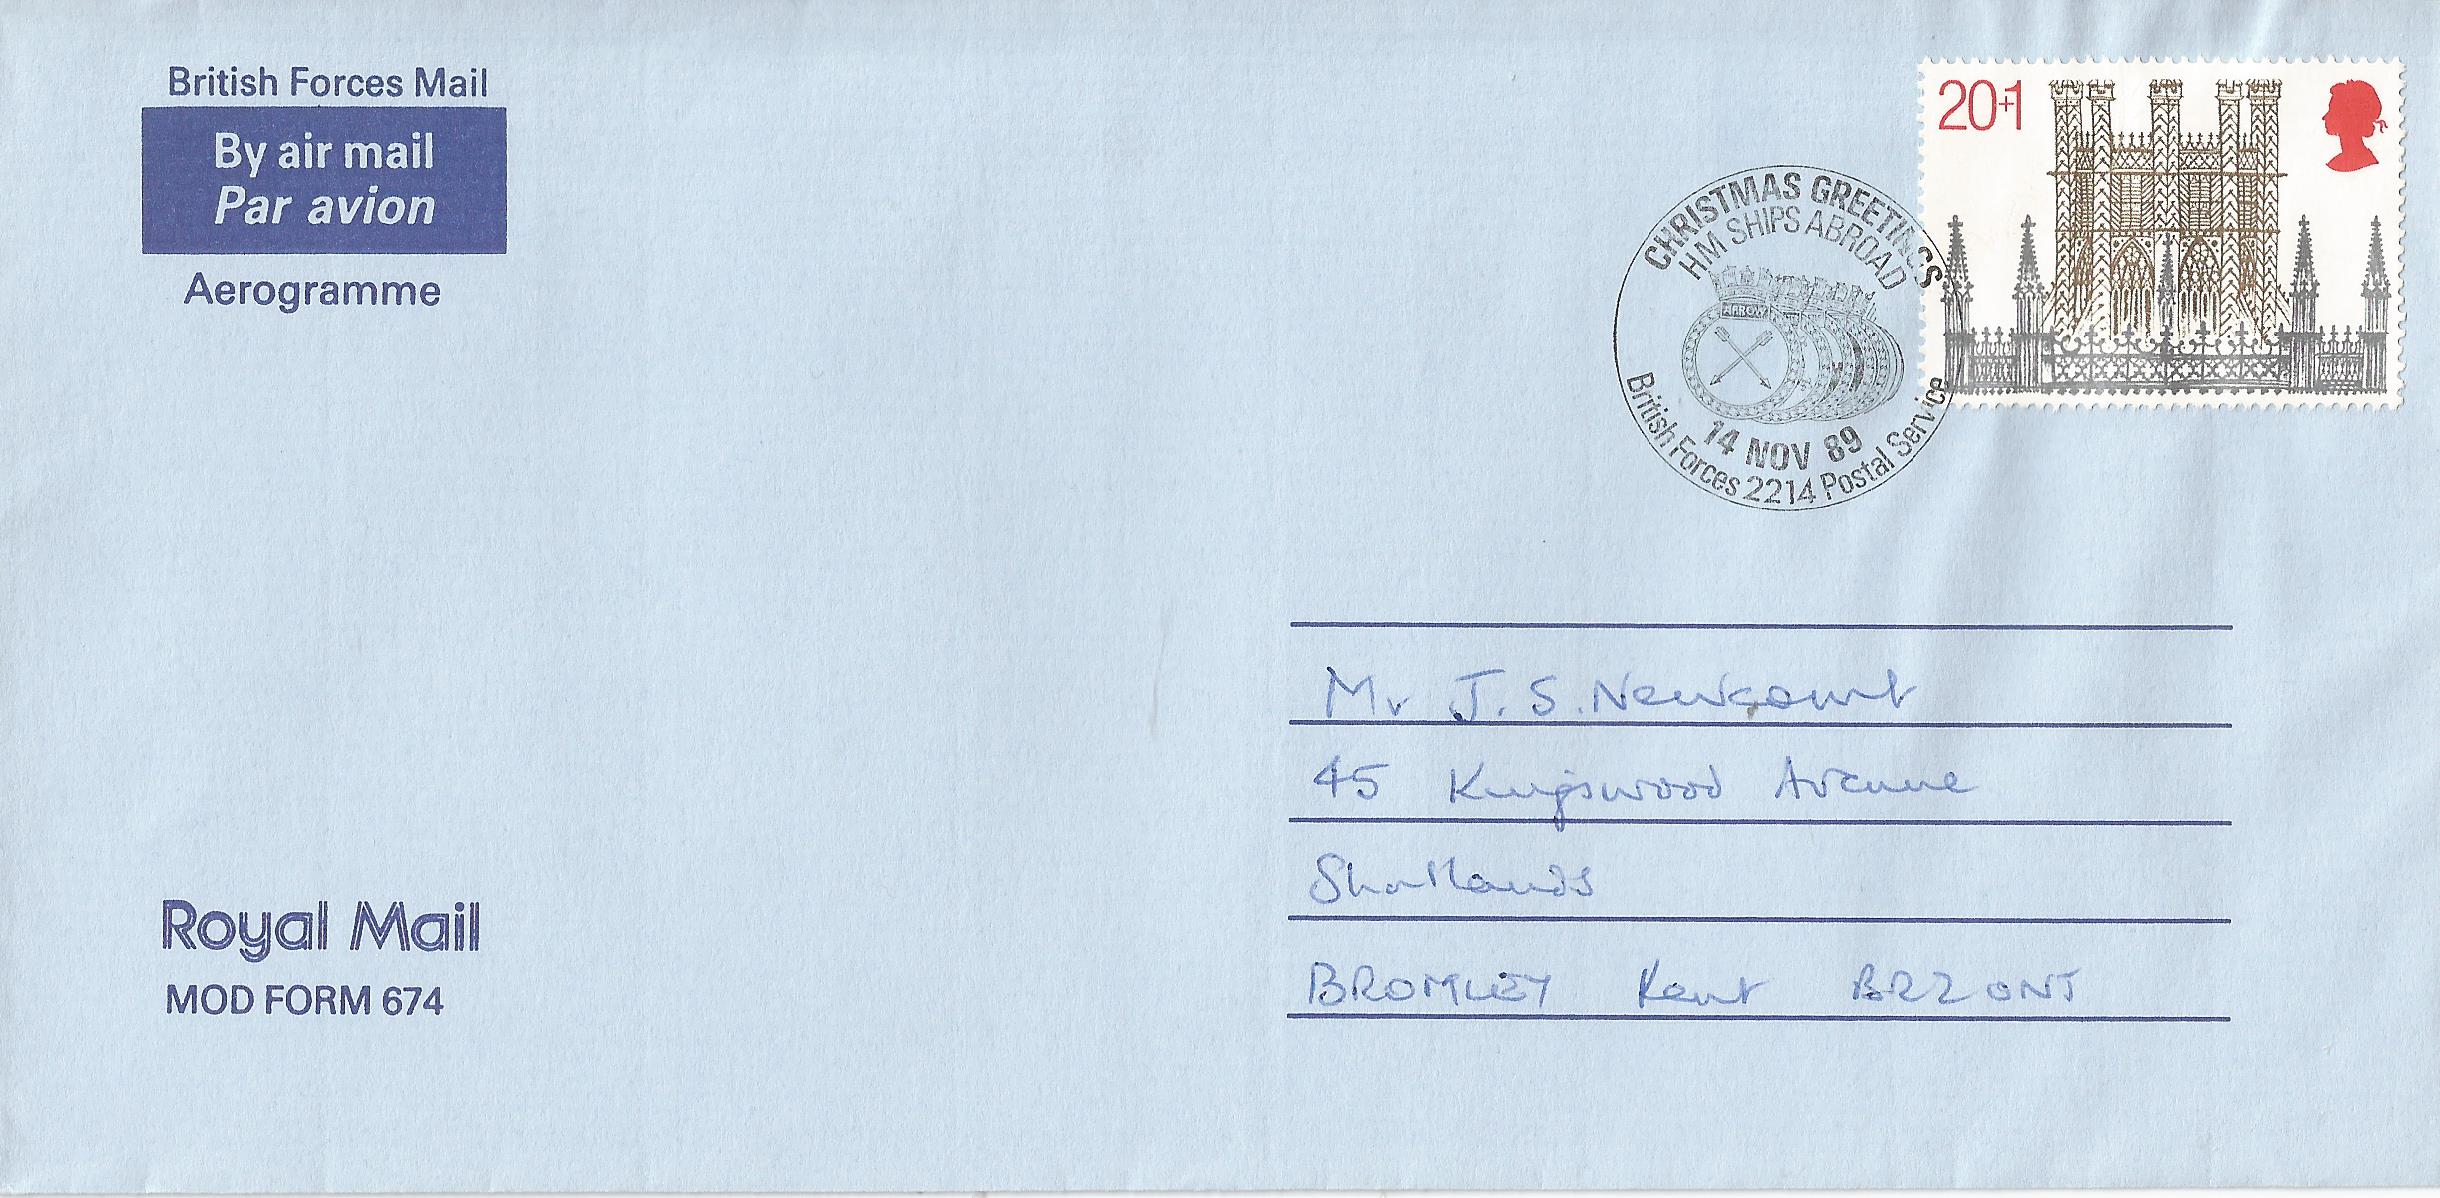 British Forces Mail
By air mail
Par avion
Aerogramme
20+1
CHRISTMAS GREETINGS
HM SHIPS ABROAD
ARROW
14 NOV 89
British Forces 2214 Postal Service
Mr J. S. Newcomb
45 Kingswood Avenue
Shortlands
BROMLEY Kent BR2 0NT
Royal Mail
MOD FORM 674